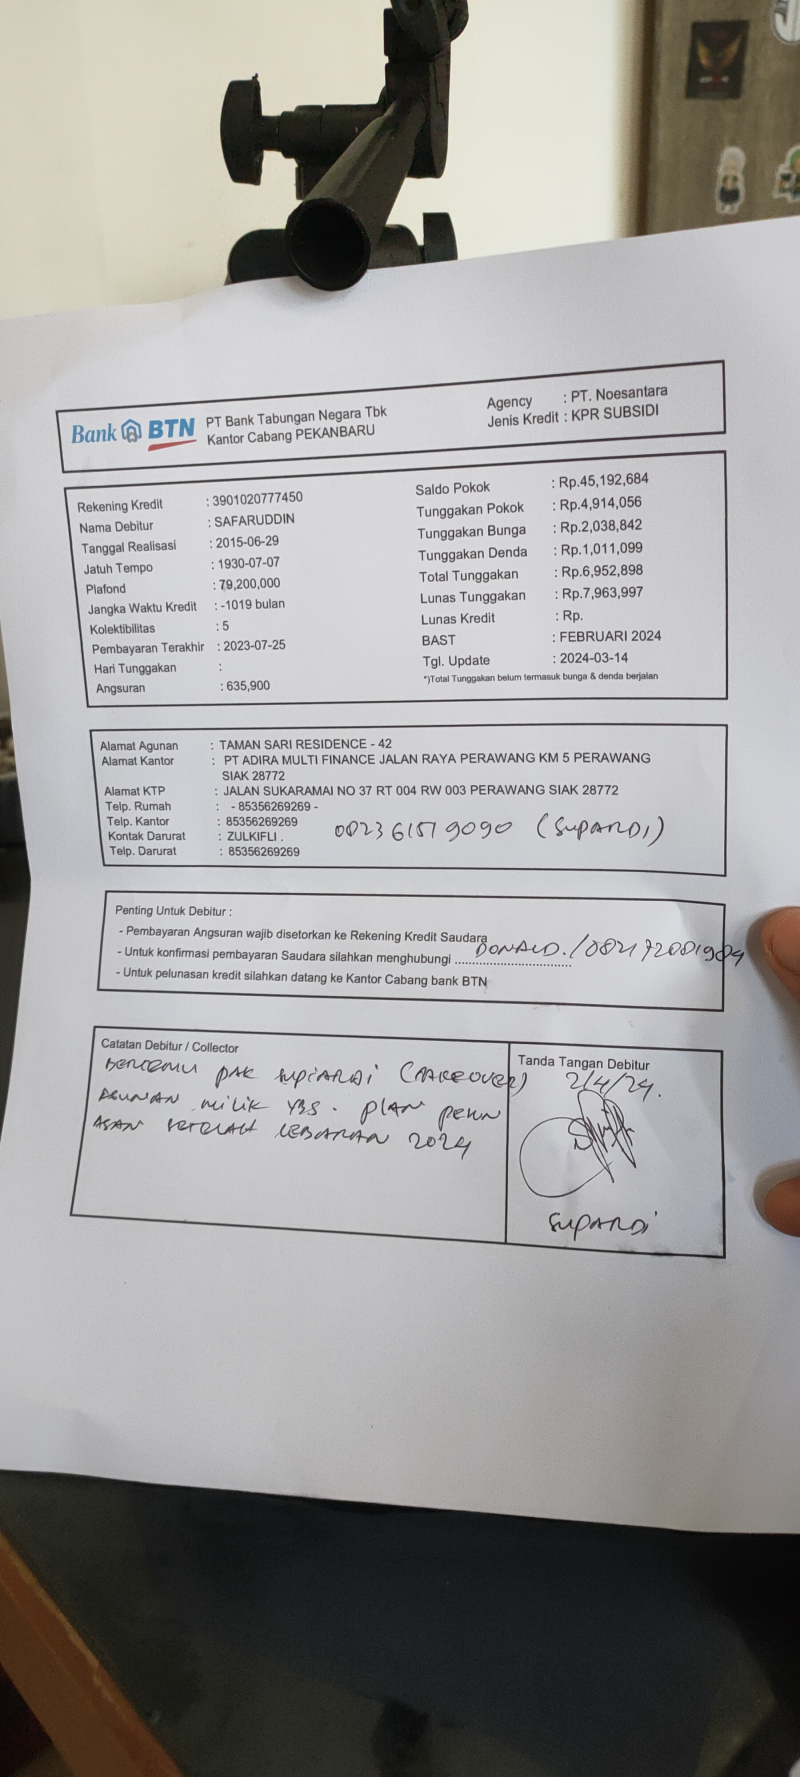 Bank BTN
PT Bank Tabungan Negara Tbk
Kantor Cabang PEKANBARU
Agency : PT. Noesantara
Jenis Kredit : KPR SUBSIDI
Rekening Kredit : 3901020777450
Nama Debitur : SAFARUDDIN
Tanggal Realisasi : 2015-06-29
Jatuh Tempo : 1930-07-07
Plafond : 79,200,000
Jangka Waktu Kredit : -1019 bulan
Kolektibilitas : 5
Pembayaran Terakhir : 2023-07-25
Hari Tunggakan :
Angsuran : 635,900
Saldo Pokok : Rp.45,192,684
Tunggakan Pokok : Rp.4,914,056
Tunggakan Bunga : Rp.2,038,842
Tunggakan Denda : Rp.1,011,099
Total Tunggakan : Rp.6,952,898
Lunas Tunggakan : Rp.7,963,997
Lunas Kredit : Rp.
BAST : FEBRUARI 2024
Tgl. Update : 2024-03-14
*)Total Tunggakan belum termasuk bunga & denda berjalan
Alamat Agunan : TAMAN SARI RESIDENCE - 42
Alamat Kantor : PT ADIRA MULTI FINANCE JALAN RAYA PERAWANG KM 5 PERAWANG
SIAK 28772
Alamat KTP : JALAN SUKARAMAI NO 37 RT 004 RW 003 PERAWANG SIAK 28772
Telp. Rumah : - 85356269269 -
Telp. Kantor : 85356269269
Kontak Darurat : ZULKIFLI .
Telp. Darurat : 85356269269
(SUPARDI)
Penting Untuk Debitur :
- Pembayaran Angsuran wajib disetorkan ke Rekening Kredit Saudara
- Untuk konfirmasi pembayaran Saudara silahkan menghubungi DONALD. /
- Untuk pelunasan kredit silahkan datang ke Kantor Cabang bank BTN
Catatan Debitur / Collector
BERTEMU PAK SUPIARDI (TAKEOVER)
AGUNAN MILIK YBS. PLAN
SETELAH LEBARAN 2024
Tanda Tangan Debitur
2/4/24.
SUPARDI